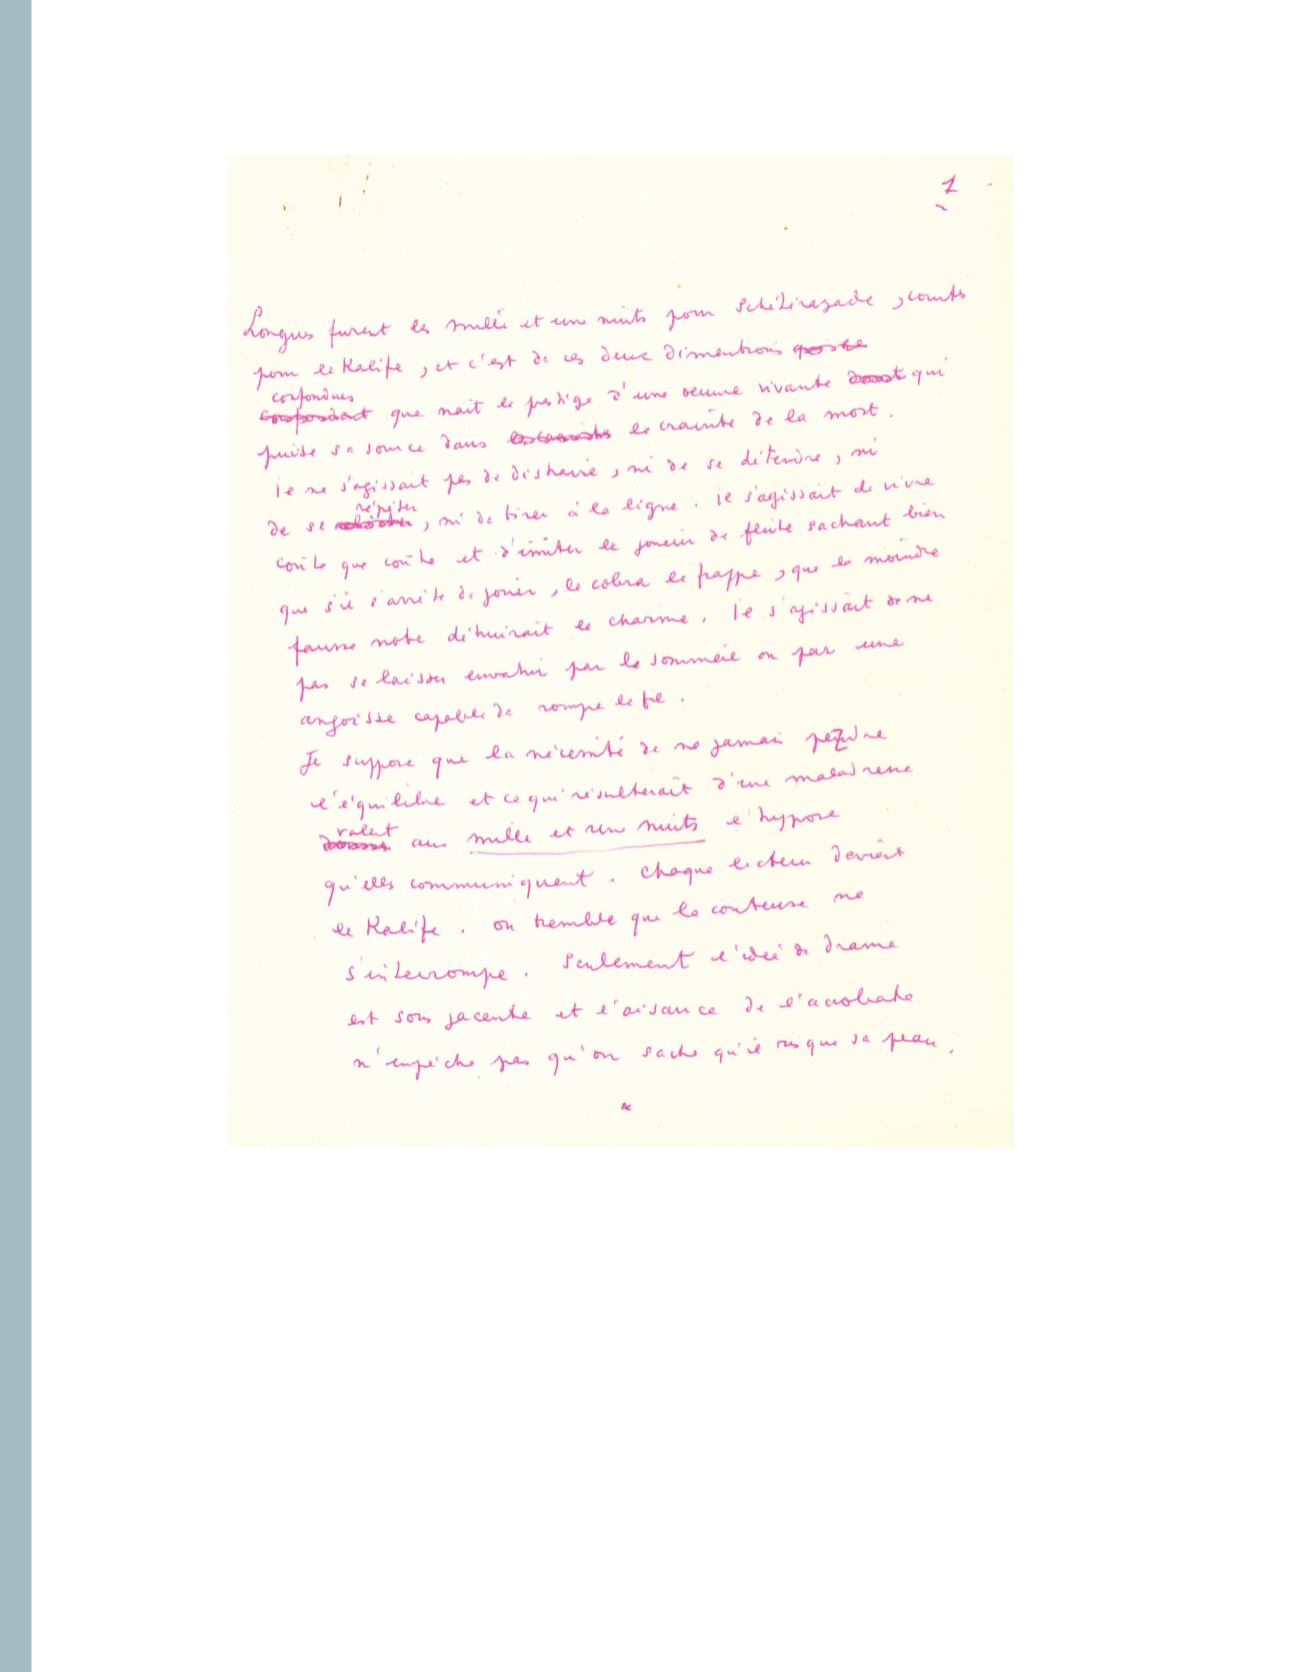 1
Longues furent les mille et une nuits pour Schéhérazade, courtes
pour le Kalife, et c'est de ces deux dimentions
confondues
que nait le prestige d'une oeuvre vivante qui
puise sa source dans la crainte de la mort.
Il ne s'agissait pas de distraire, ni de se détendre, ni
répéter
de se, ni de tirer à la ligne. Il s'agissait de vivre
coûte que coûte et d'imiter le joueur de flûte sachant bien
que s'il s'arrête de jouer, le cobra le frappe, que la moindre
fausse note détruirait le charme. Il s'agissait de ne
pas se laisser envahir par le sommeil ou par une
angoisse capable de rompre le fil.
Je suppose que la nécessité de ne jamais perdre
l'équilibre et ce qui résulterait d'une maladresse
valent
aux mille et une nuits l'hypnose
qu'elles communiquent. Chaque lecteur devient
le Kalife. On tremble que la conteuse ne
s'interrompe. Seulement l'idée de drame
est sous jacente et l'aisance de l'acrobate
n'empêche pas qu'on sache qu'il risque sa peau.